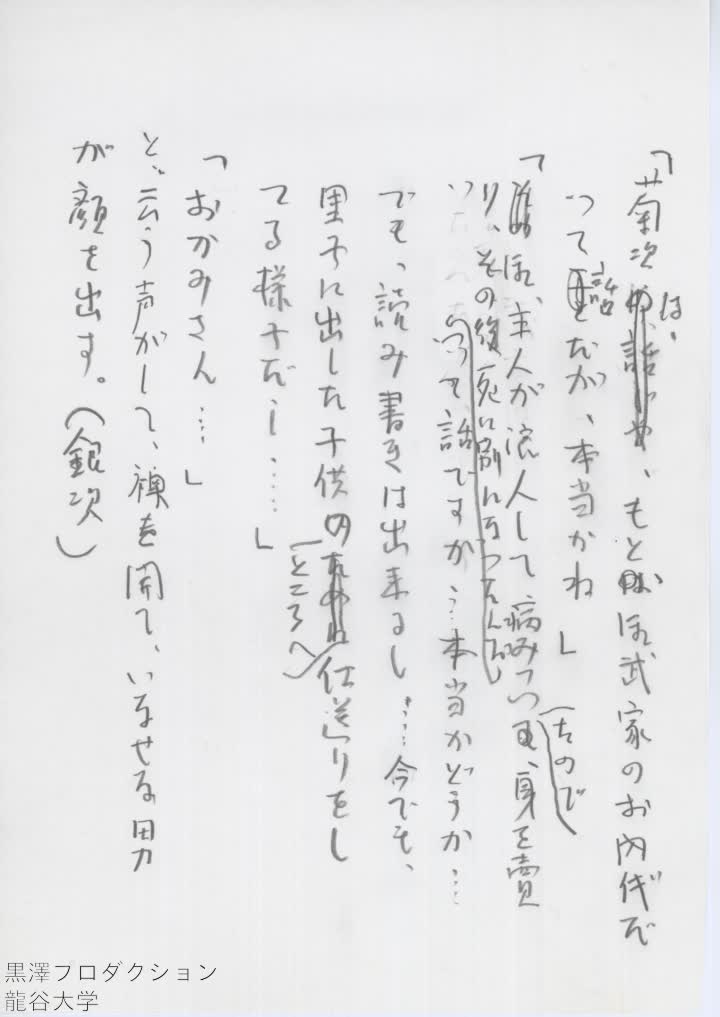 「菊次は、もとは、武家のお内儀だ
って話だが、本当かね」
「は、主人が浪人して病みついたので、身を売
り、その後死に別れになったんだ
って話ですが…本当かどうか…
でも、読み書きは出来るし……今でも、
里子に出した子供のところへ仕送りをし
てる様子だし……」
「おかみさん…」
と、云う声がして、襖を開て、いなせな男
が顔を出す。(銀次)
黒澤プロダクション
龍谷大学